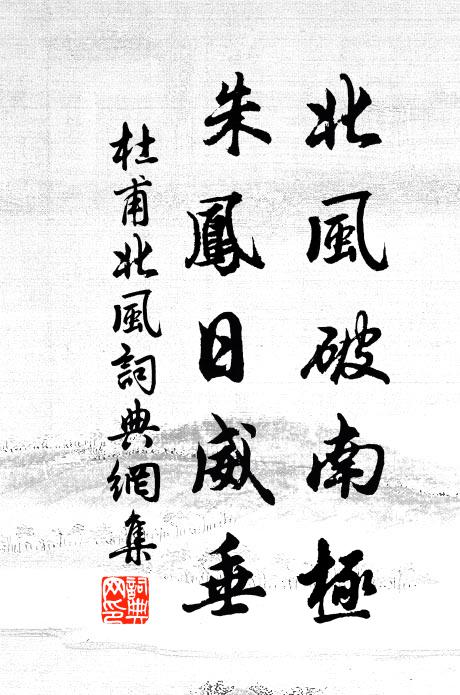 北風破南極
朱鳳日威垂
杜甫北風詞典網集
詞典網印